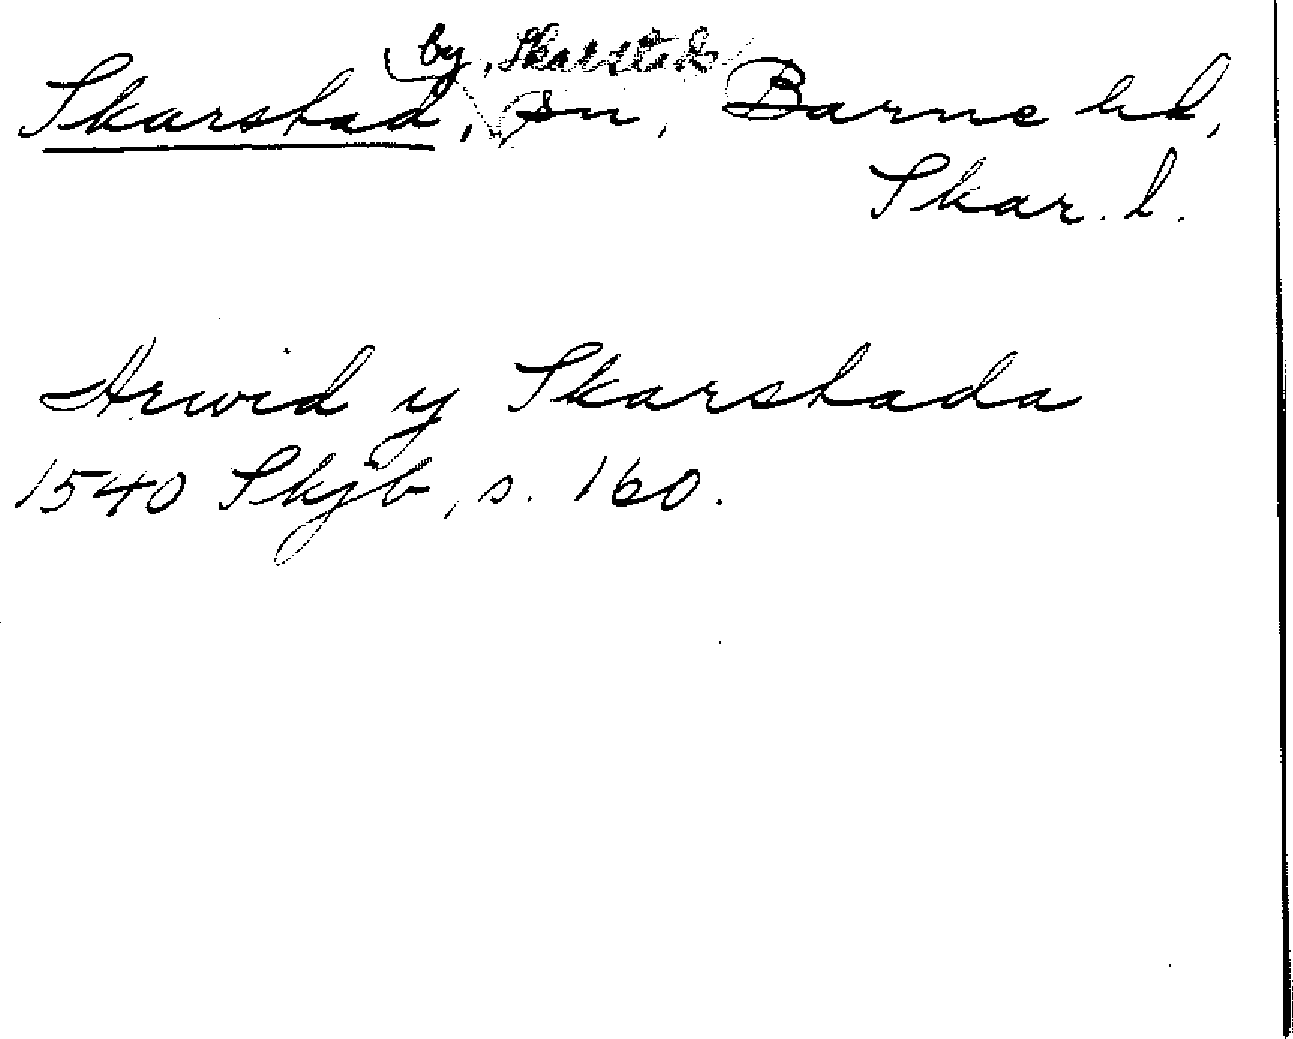 by, Skarstads
Skarstad, sn, Barne hd,
Skar. l.
Arwid y Skarstada
1540 Skjb, s. 160.